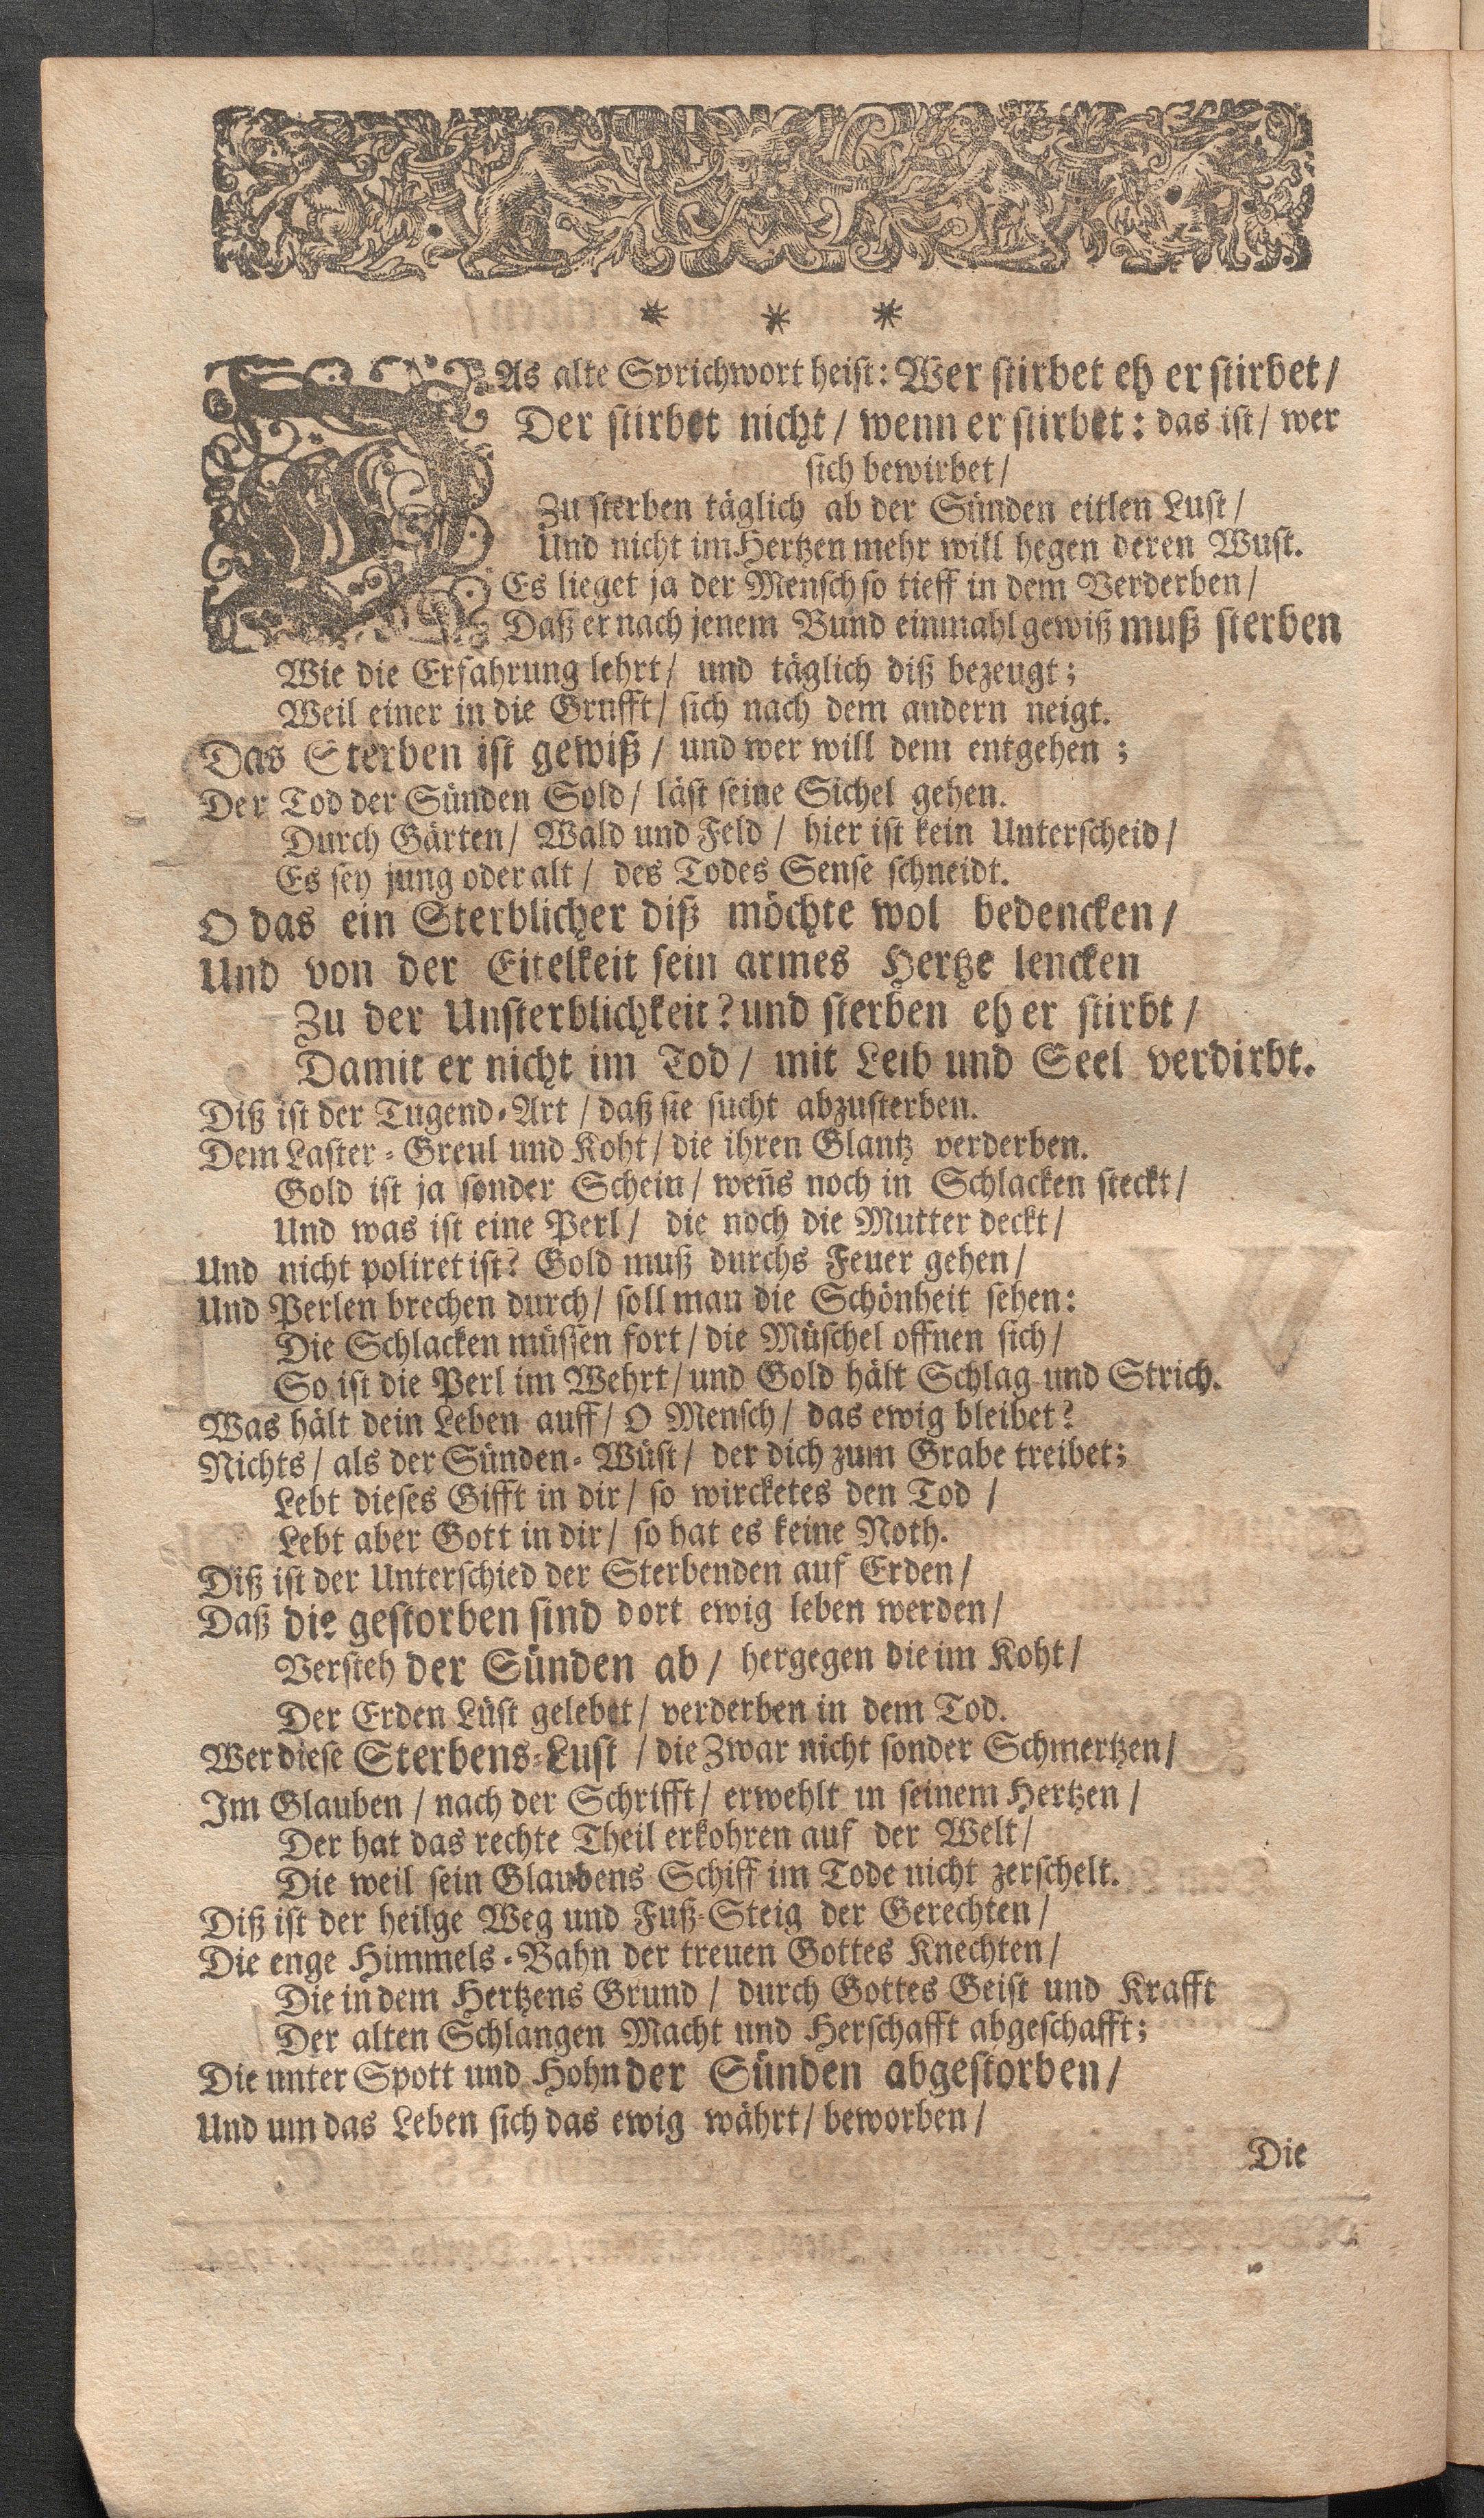 * * *
DAs alte Sprichwort heist: Wer stirbet eh er stirbet/
Der stirbet nicht/ wenn er stirbet: das ist/ wer
sich bewirbet/
Zu sterben täglich ab der Sünden eitlen Lust/
Und nicht im Hertzen mehr will hegen deren Wust.
Es lieget ja der Mensch so tieff in dem Verderben/
Daß er nach jenem Bund einmahl gewiß muß sterben
Wie die Erfahrung lehrt/ und täglich diß bezeugt;
Weil einer in die Grufft/ sich nach dem andern neigt.
Das Sterben ist gewiß/ und wer will dem entgehen;
Der Tod der Sünden Sold/ läst seine Sichel gehen.
Durch Gärten/ Wald und Feld/ hier ist kein Unterscheid/
Es sey jung oder alt/ des Todes Sense schneidt.
O das ein Sterblicher diß möchte wol bedencken/
Und von der Eitelkeit sein armes Hertze lencken
Zu der Unsterblichkeit? und sterben eh er stirbt/
Damit er nicht im Tod/ mit Leib und Seel verdirbt.
Diß ist der Tugend-Art/ daß sie sucht abzusterben.
Dem Laster-Greul und Koht/ die ihren Glantz verderben.
Gold ist ja sonder Schein/ weñs noch in Schlacken steckt/
Und was ist eine Perl/ die noch die Mutter deckt/
Und nicht poliret ist? Gold muß durchs Feuer gehen/
Und Perlen brechen durch/ soll man die Schönheit sehen:
Die Schlacken müssen fort/ die Müschel offnen sich/
So ist die Perl im Wehrt/ und Gold hält Schlag und Strich.
Was hält dein Leben auff/ O Mensch/ das ewig bleibet?
Nichts/ als der Sünden-Wüst/ der dich zum Grabe treibet;
Lebt dieses Gifft in dir/ so wircketes den Tod/
Lebt aber Gott in dir/ so hat es keine Noth.
Diß ist der Unterschied der Sterbenden auf Erden/
Daß die gestorben sind dort ewig leben werden/
Versteh der Sünden ab/ hergegen die im Koht/
Der Erden Lüst gelebet/ verderben in dem Tod.
Wer diese Sterbens-Lust/ die Zwar nicht sonder Schmertzen/
Im Glauben/ nach der Schrifft/ erwehlt in seinem Hertzen/
Der hat das rechte Theil erkohren auf der Welt/
Die weil sein Glaubens Schiff im Tode nicht zerschelt.
Diß ist der heilge Weg und Fuß-Steig der Gerechten/
Die enge Himmels-Bahn der treuen Gottes Knechten/
Die in dem Hertzens Grund/ durch Gottes Geist und Krafft
Der alten Schlangen Macht und Herschafft abgeschafft;
Die unter Spott und Hohn der Sünden abgestorben/
Und um das Leben sich das ewig währt/ beworben/
Die